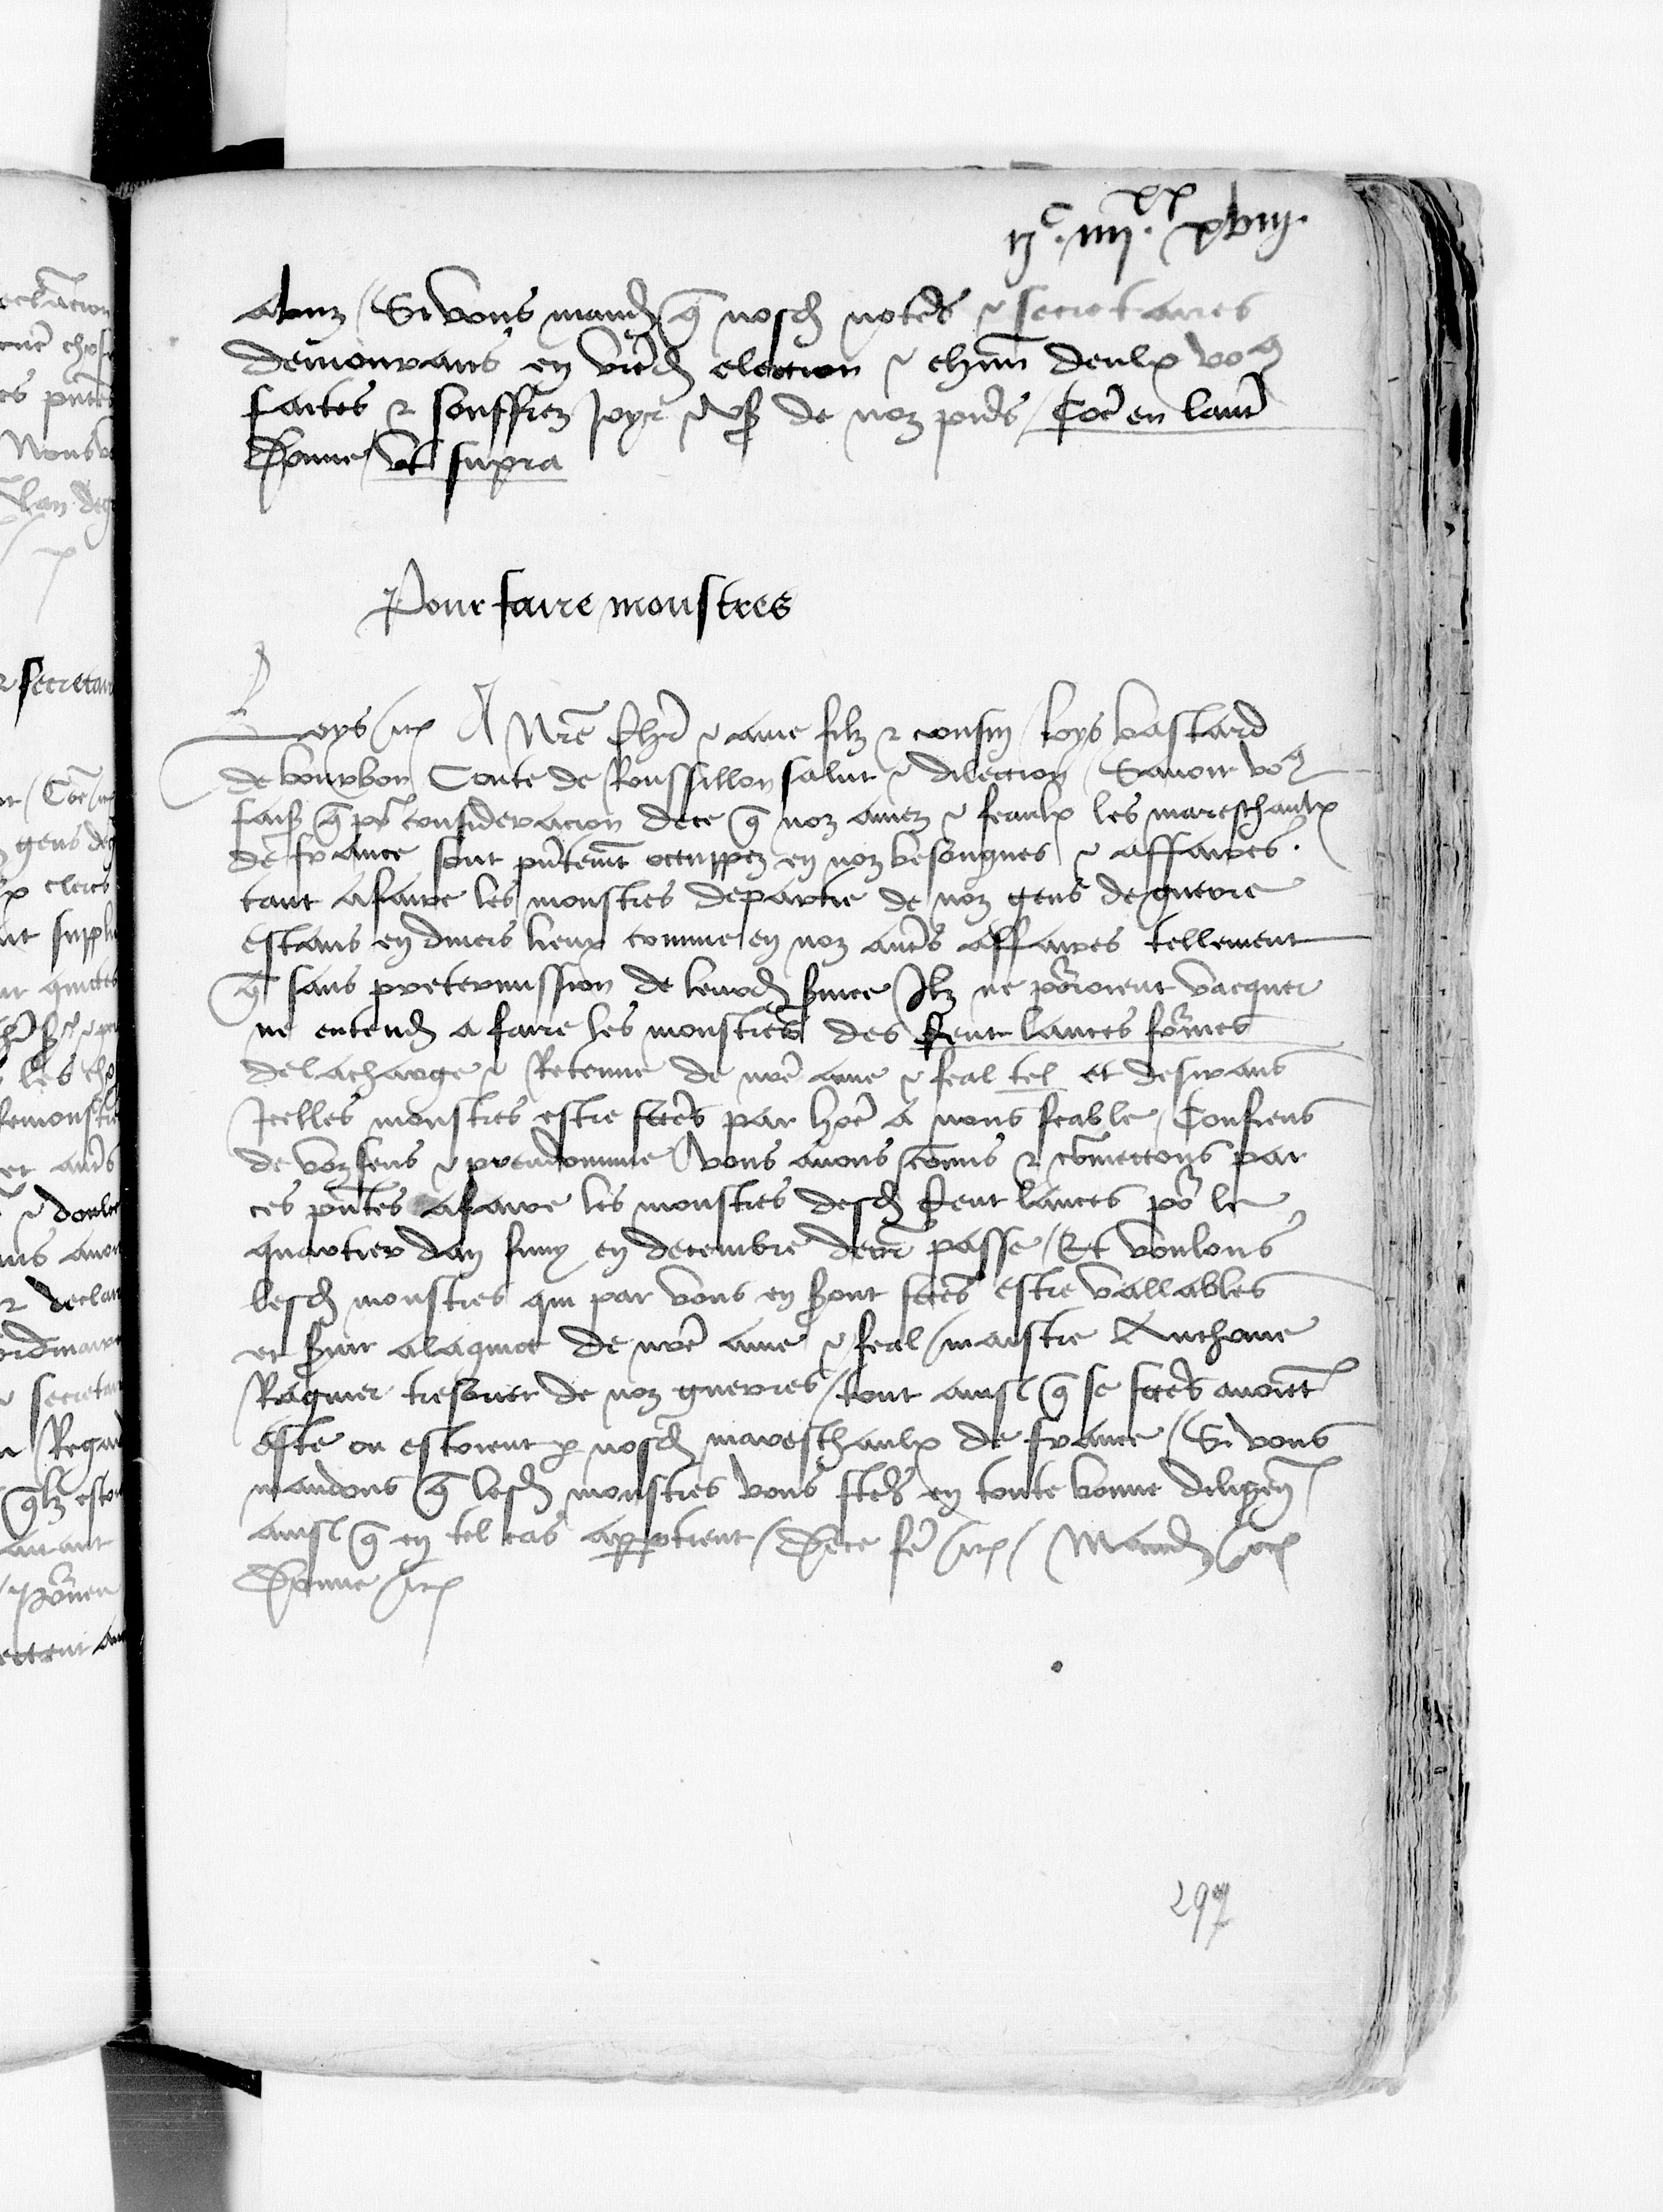 ijc. iiijxx. xviij.
aluz / Si vous mand que nosd notes & secretaires
demourans en vred election & chun deulx vous
faictes & souffrez joyr & us de noz pntes / Coe en lautre
Donne / ut supra
Pour faire monstres
Loys etc A Nre cher & ame filz & cousin / loys bastard
de bourbon Conte de Roussillon salut & dilection / Savoir vous
fais que por consideracion de ce que noz amez & feaulx les mareschaulx
de france sont pntemt occuppez en noz besongnes & affaires.
tant a faire les monstres de partie de noz gens de guerre
estans en divers lieux comme en noz autres affaires tellement
que sans pretermission de leurd service Ilz ne porroient vacquer
ne entend a faire les monstres des cent lances fornies
de la charge & Retenue de nre ame & feal tel et desirans
Icelles monstres estre fctes par hoe a nous feable / Confiens
de voz sens & preudommie vous avons commis & commectons par
ces pntes a faire les monstres desd cent lances por le
quartier dan finy en decembre derr passe / Et voulons
lesd monstres qui par vous en seront fctes estre vallables
et servir a lacquict de nre ame & feal maistre Anthoine
Raguier tresorier de noz guerres / tout ainsi que se fctes avoient
este ou estoient par nosd mareschaulx de france / Si vous
mandons que lesd monstres vous fctes en toute bonne diligen
ainsi que en tel cas appartient / De ce fe etc / Mand etc
Donne etc
297